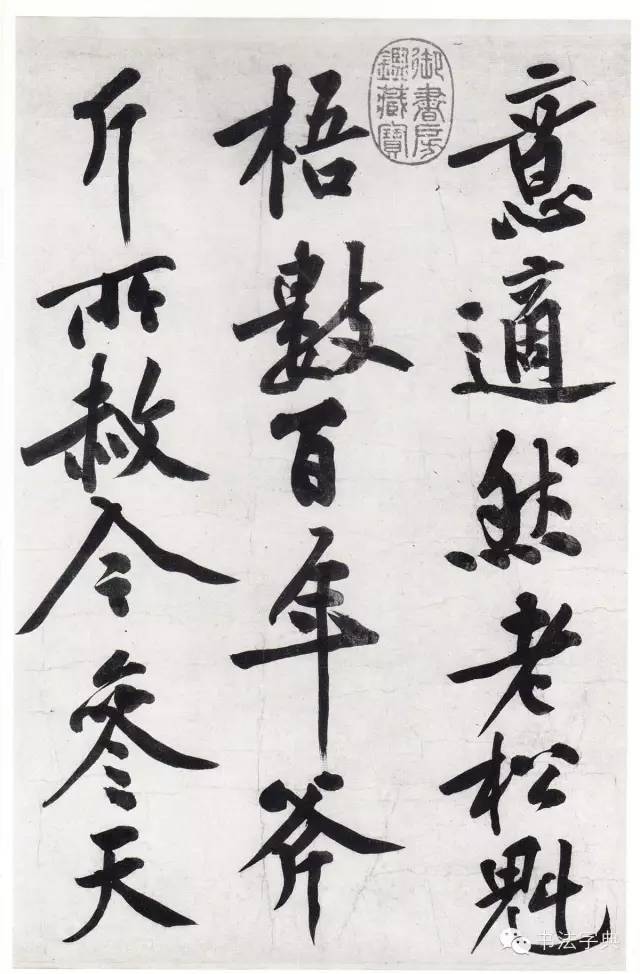 意適然老松魁
梧數百年斧
斤所赦今參天
御書房
鑑藏寶
书法字典